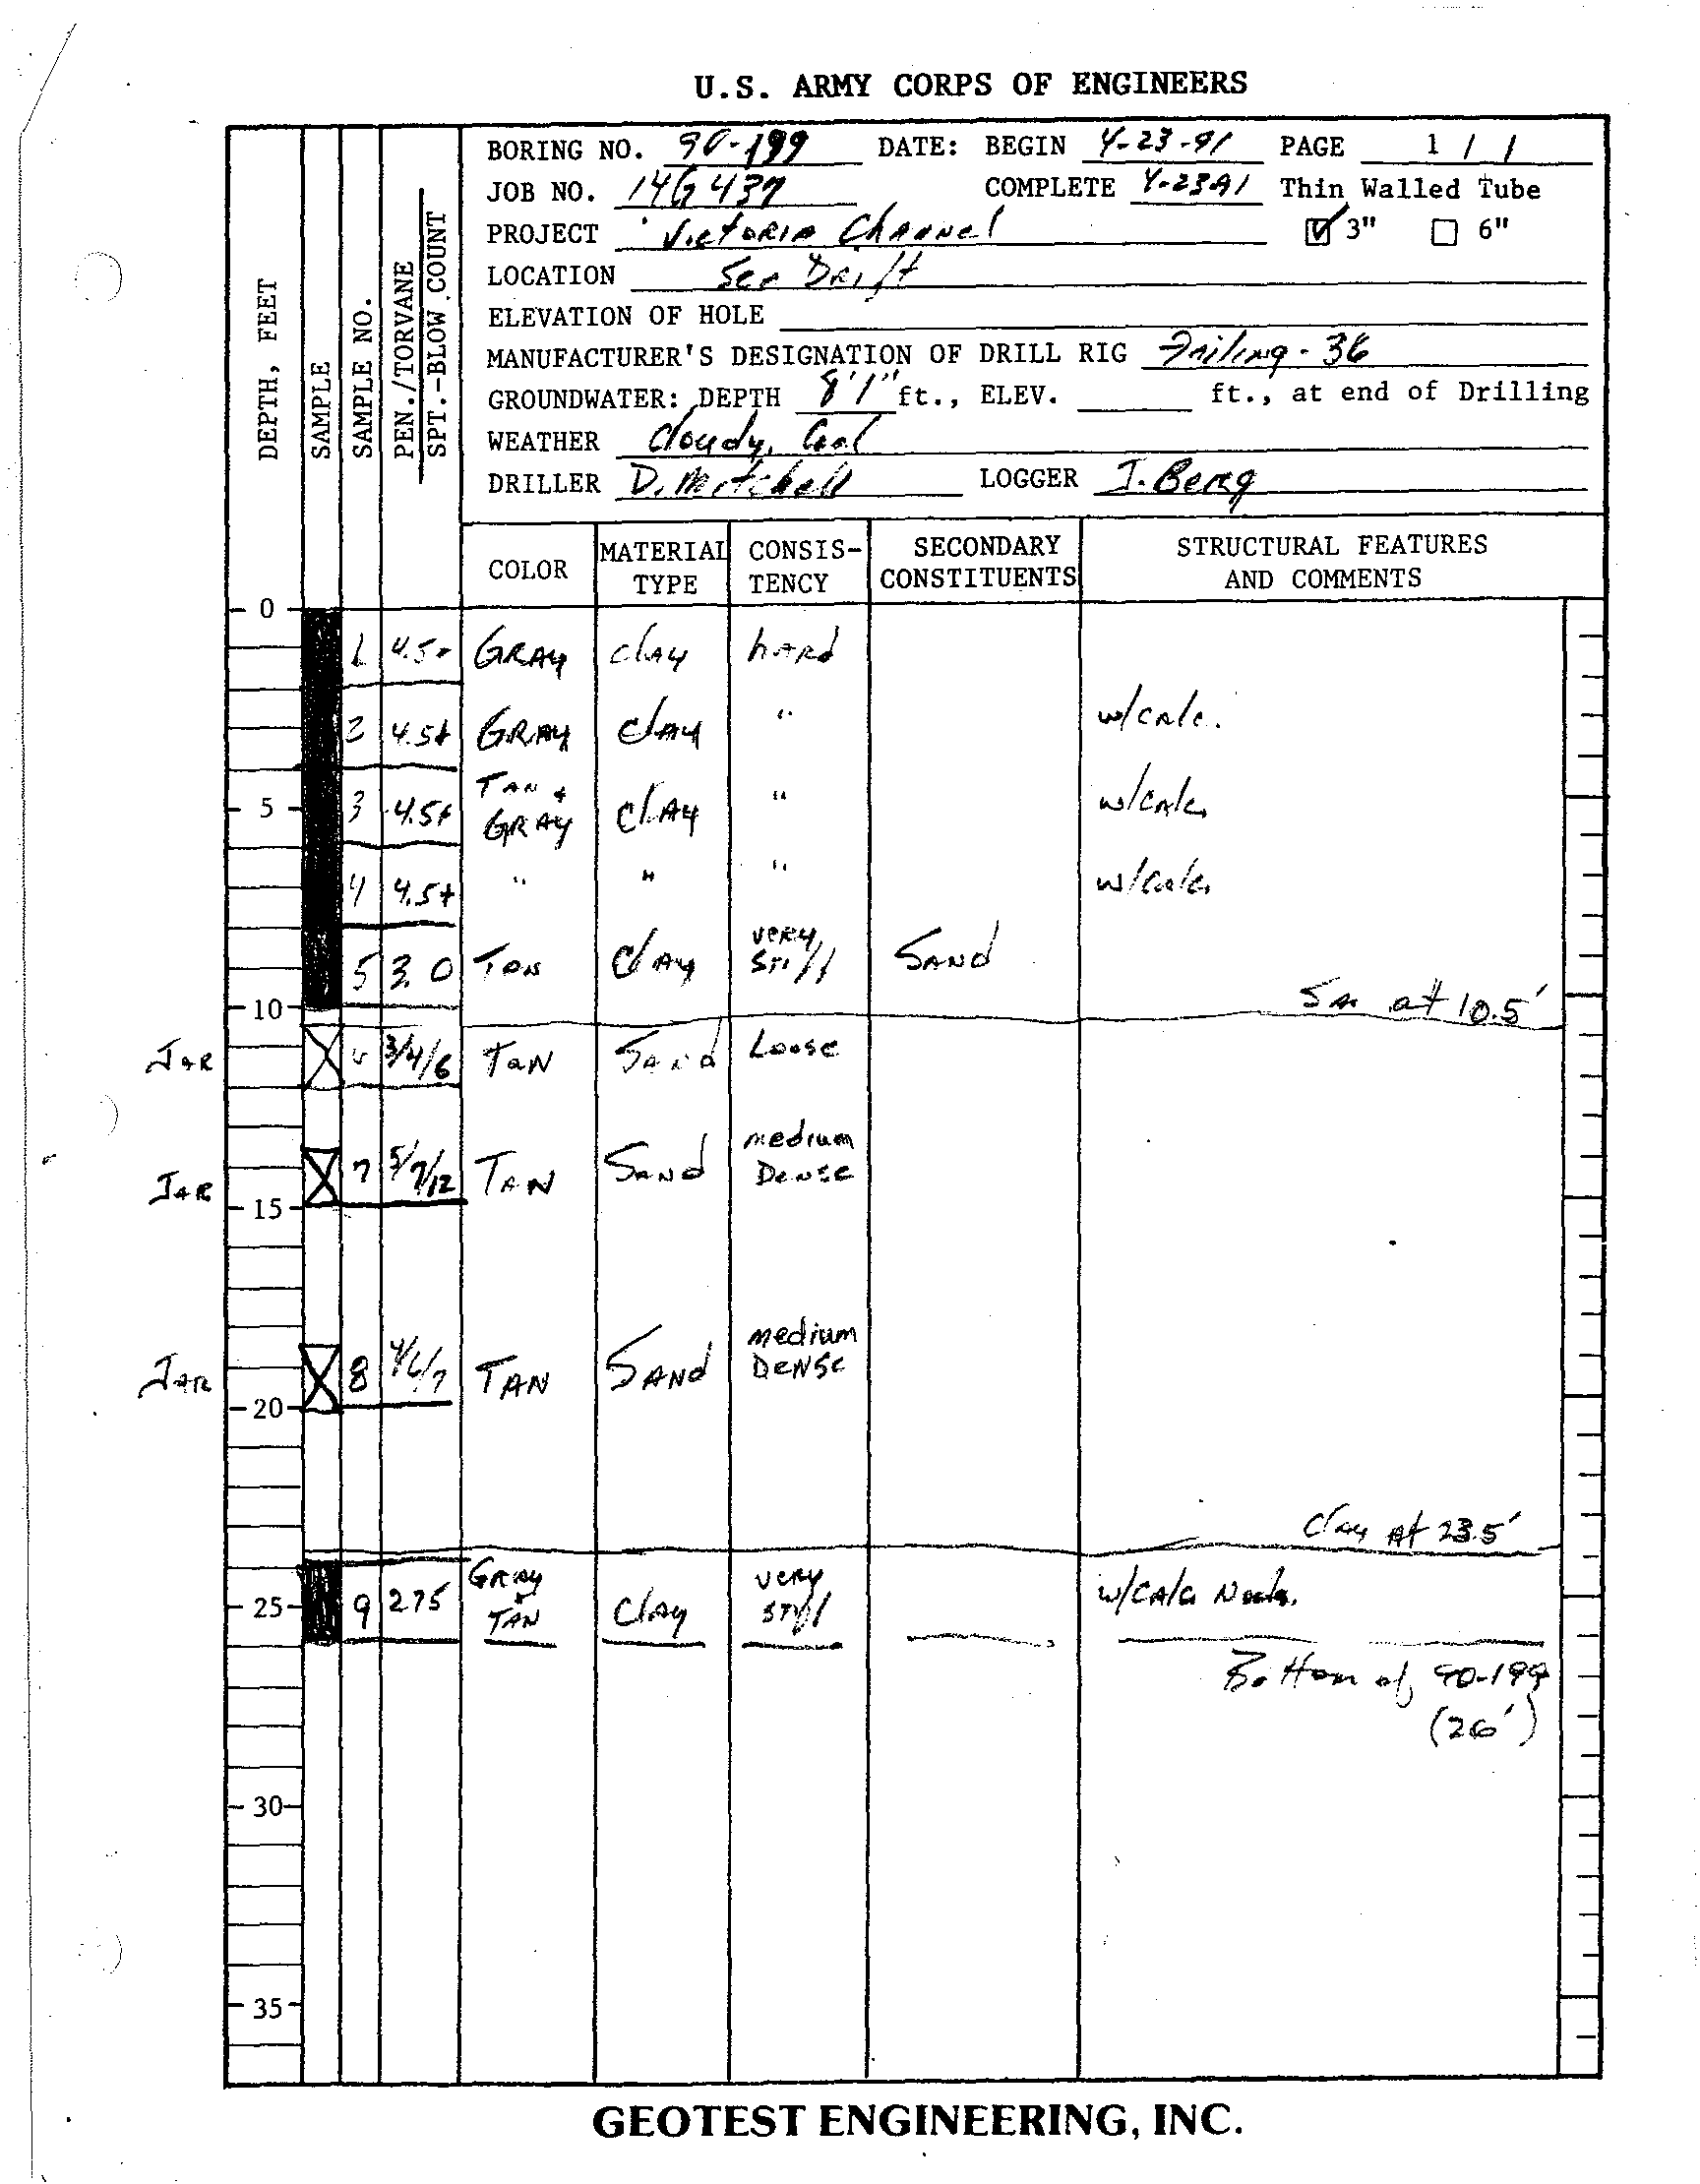 U.S. ARMY CORPS OF ENGINEERS
BORING NO. 90-199 DATE: BEGIN 4-23-91 PAGE 1 / 1
JOB NO. 14G437 COMPLETE 4-23-91 Thin Walled Tube
PROJECT Victoria Channel ☑ 3" ☐ 6"
LOCATION Sea Drift
ELEVATION OF HOLE
MANUFACTURER'S DESIGNATION OF DRILL RIG Failing-36
GROUNDWATER: DEPTH 8'1" ft., ELEV. ft., at end of Drilling
WEATHER Cloudy, Cool
DRILLER D. Mitchell LOGGER J. Berg
DEPTH, FEET
SAMPLE
SAMPLE NO.
PEN./TORVANE
SPT.-BLOW COUNT
COLOR MATERIAL TYPE CONSIS-TENCY SECONDARY CONSTITUENTS STRUCTURAL FEATURES AND COMMENTS
0
1 4.5+ GRAY clay hard
2 4.5+ GRAY clay " w/calc.
5 3 4.5+ TAN + GRAY clay " w/calc.
4 4.5+ " " " w/calc.
5 3.0 Tan clay very stiff SAND
10 Sa. at 10.5'
JAR 3/4/6 TaN Sand Loose
JAR 7 5/7/12 TAN Sand medium Dense
15
JAR 8 4/6/7 TAN SAND medium DENSE
20
Clay At 23.5'
25 9 2.75 GRAY + TAN Clay very stiff w/CALC Nods.
Bottom of 90-199
(26')
30
35
GEOTEST ENGINEERING, INC.